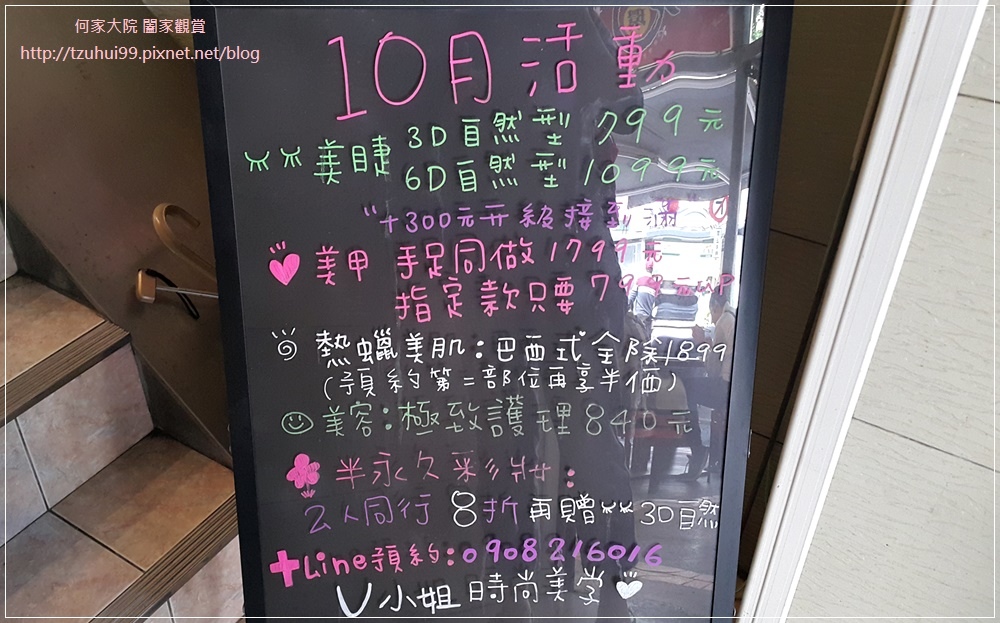 何家大院 闔家觀賞
http://tzuhui99.pixnet.net/blog
10月活動
美睫 3D自然型 799元
6D自然型 1099元
+300元升級接到滿
美甲 手足同做1799元
指定款只要 799元
熱蠟美肌:巴西式全除1899
(預約第二部位再享半価)
美容:極致護理840元
半永久彩妝:
2人同行 8折 再贈 3D自然
+Line預約:0908216016
V小姐時尚美学